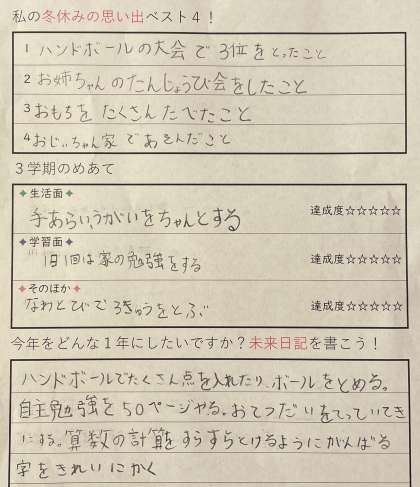 私の冬休みの思い出ベスト4！
1 ハンドボールの大会で3位をとったこと
2 お姉ちゃんのたんじょうび会をしたこと
3 おもちをたくさんたべたこと
4 おじいちゃん家であそんだこと
3学期のめあて
✦生活面✦
手あらい,うがいをちゃんとする
達成度☆☆☆☆☆
✦学習面✦
1日1回は家の勉強をする
達成度☆☆☆☆☆
✦そのほか✦
なわとびで3きゅうをとぶ
達成度☆☆☆☆☆
今年をどんな1年にしたいですか？未来日記を書こう！
ハンドボールでたくさん点を入れたり、ボールをとめる。
自主勉強を50ページやる。おてつだいをてっていてき
にする。算数の計算をすらすらとけるようにがんばる
字をきれいにかく